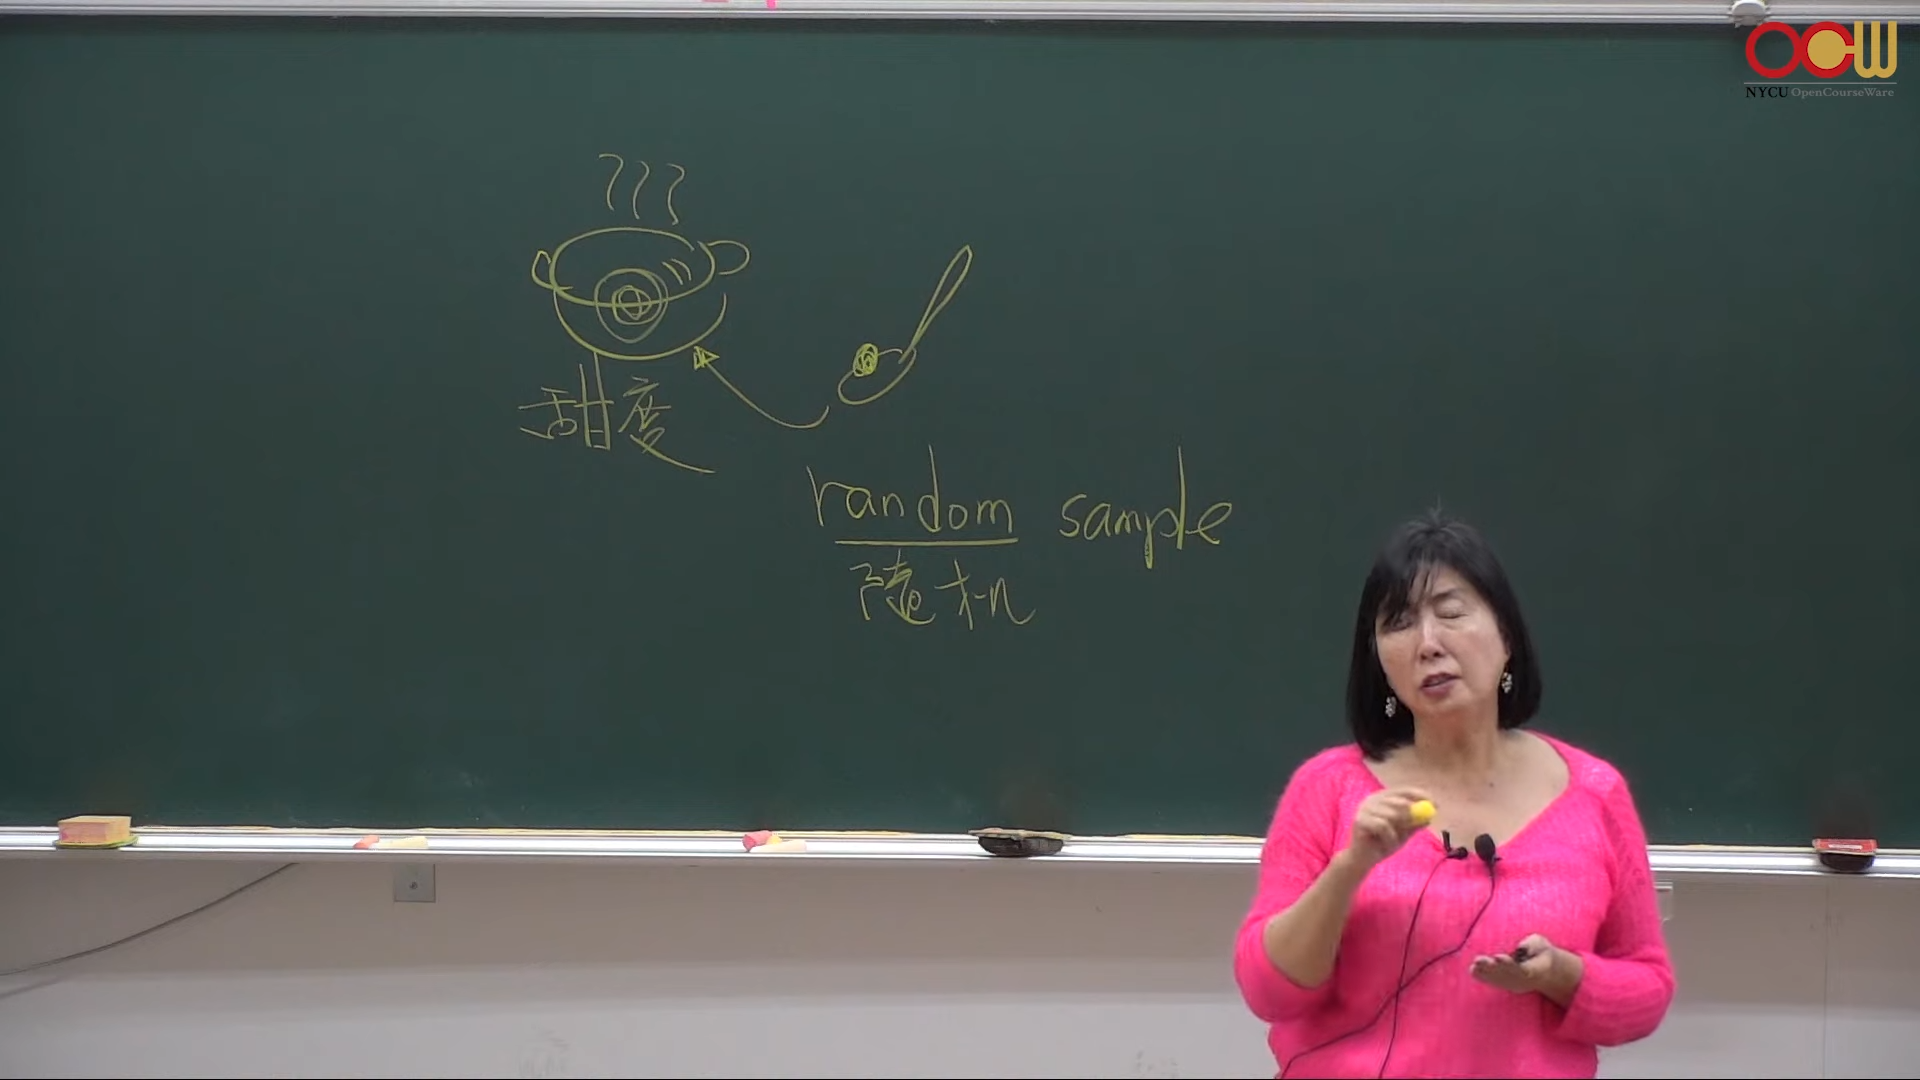 OCW
NYCU OpenCourseWare
甜度
random sample
隨机